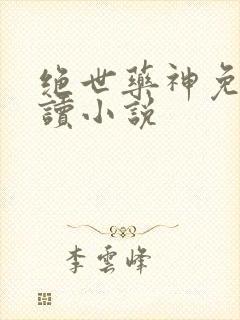 绝世藥神免
讀小説
李雲峰